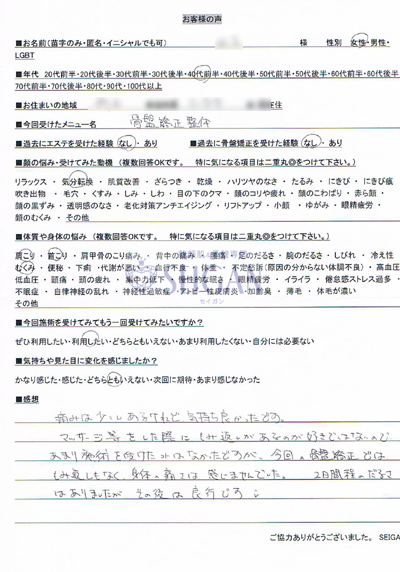 お客様の声
■お名前(苗字のみ・匿名・イニシャルでも可) 様 性別 女性・男性・
LGBT
■年代 20代前半・20代後半・30代前半・30代後半・40代前半・40代後半・50代前半・50代後半・60代前半・60代後半
70代前半・70代後半・80代・90代・100代以上
■お住まいの地域 在住
■今回受けたメニュー名 骨盤矯正整体
■過去にエステを受けた経験 なし・あり ■過去に骨盤矯正を受けた経験 なし・あり
■顔の悩み・受けてみた動機 (複数回答OKです。 特に気になる項目は二重丸◎をつけて下さい。)
リラックス ・ 気分転換 ・ 肌質改善 ・ ざらつき ・ 乾燥 ・ ハリツヤのなさ ・ たるみ ・ にきび ・ にきび痕
吹き出物 ・ 毛穴 ・ くすみ ・ しみ ・ しわ ・ 目の下のクマ ・ 顔のゆがみ・ コリや疲れ ・ 顔のこわばり ・ 赤ら顔
顔の黒ずみ ・ 透明感のなさ ・ 老化対策アンチエイジング ・ リフトアップ ・ 小顔 ・ ゆがみ ・ 眼精疲労 ・
顔のむくみ ・ その他
■体質や身体の悩み (複数回答OKです。 特に気になる項目は二重丸◎をつけて下さい。)
肩こり ・ 首こり ・ 肩甲骨のこり痛み ・ 背中の痛み ・ 腰痛 ・ 足のだるさ ・ 腕のだるさ ・ しびれ ・ 冷え性
むくみ ・ 便秘 ・ 下痢 ・ 代謝が悪い ・ 血行不良 ・ 不眠 ・ 不定愁訴(原因の分からない体調不良) ・ 高血圧
低血圧 ・ 頭痛 ・ 頭の疲れ ・ 集中力低下 ・ 慢性的な眠さ ・ 眼精疲労 ・ イライラ ・ 倦怠感ストレス過多 ・
不眠症 ・ 自律神経の乱れ ・ 神経性過敏症 ・ アトピー性皮膚炎 ・ 加齢臭 ・ 薄毛 ・ 体毛が濃い
その他
SEIGAN
セイガン
■今回施術を受けてみてもう一回受けてみたいですか？
ぜひ利用したい・利用したい・どちらともいえない・あまり利用したくない・自分には必要ない
■気持ちや見た目に変化を感じましたか？
かなり感じた・感じた・どちらともいえない・次回に期待・あまり感じなかった
■感想
痛みは少しあるけれど気持ち良かったです。
マッサージ等をした際にもみ返しがあるのが好きではないので
あまり施術を受けた事はなかったですが、今回の骨盤矯正では
もみ返しもなく、身体の痛さは感じませんでした。 2日間程のだるさ
はありましたが その後は良好です
ご協力ありがとうございました。 SEIGA